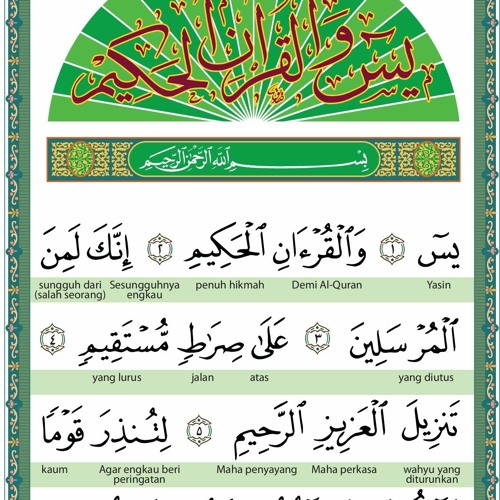 يسٓ وَالْقُرْآنِ الْحَكِيْمِ
بِسْمِ اللهِ الرَّحْمٰنِ الرَّحِيْمِ
يسٓ ١ وَٱلْقُرْءَانِ ٱلْحَكِيمِ ٢ إِنَّكَ لَمِنَ
Yasin Demi Al-Quran penuh hikmah Sesungguhnya engkau sungguh dari (salah seorang)
ٱلْمُرْسَلِينَ ٣ عَلَىٰ صِرَٰطٍ مُّسْتَقِيمٍ ٤
yang diutus atas jalan yang lurus
تَنزِيلَ ٱلْعَزِيزِ ٱلرَّحِيمِ ٥ لِتُنذِرَ قَوْمًا
wahyu yang diturunkan Maha perkasa Maha penyayang Agar engkau beri peringatan kaum